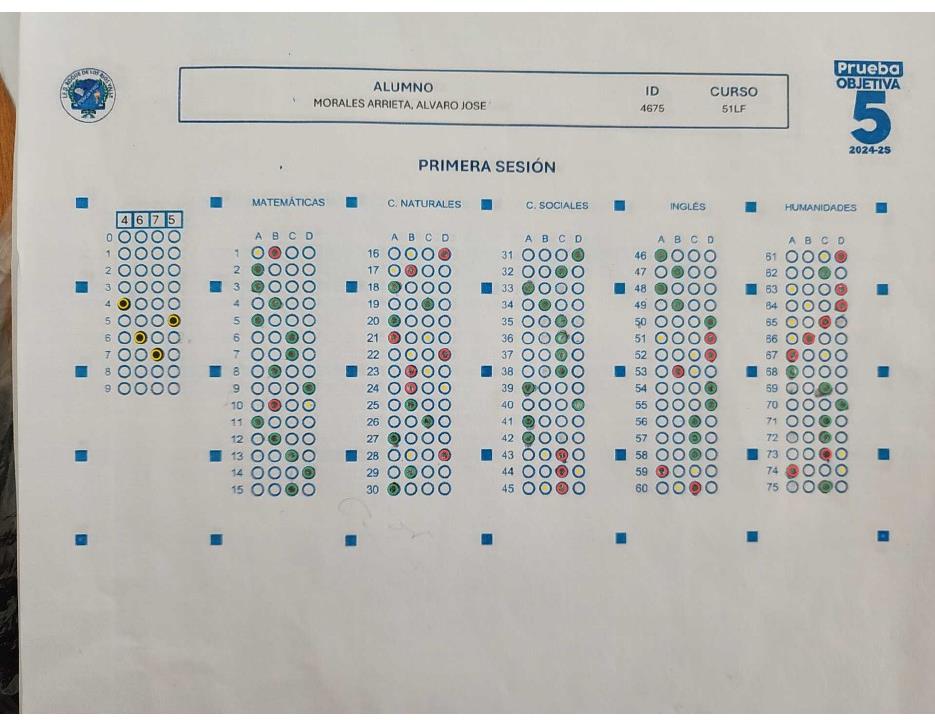 ALUMNO
MORALES ARRIETA, ALVARO JOSE
ID
4675
CURSO
51LF
Prueba
OBJETIVA
5
2024-25
PRIMERA SESIÓN
4 6 7 5
0
1
2
3
4
5
6
7
8
9
MATEMÁTICAS
A B C D
1
2
3
4
5
6
7
8
9
10
11
12
13
14
15
C. NATURALES
A B C D
16
17
18
19
20
21
22
23
24
25
26
27
28
29
30
C. SOCIALES
A B C D
31
32
33
34
35
36
37
38
39
40
41
42
43
44
45
INGLÉS
A B C D
46
47
48
49
50
51
52
53
54
55
56
57
58
59
60
HUMANIDADES
A B C D
61
62
63
64
65
66
67
68
69
70
71
72
73
74
75